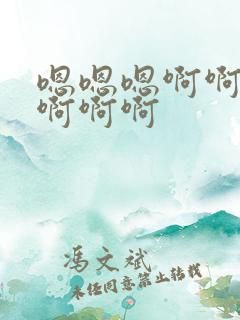 嗯嗯嗯啊啊
啊啊啊
冯文斌
未经同意禁止转载